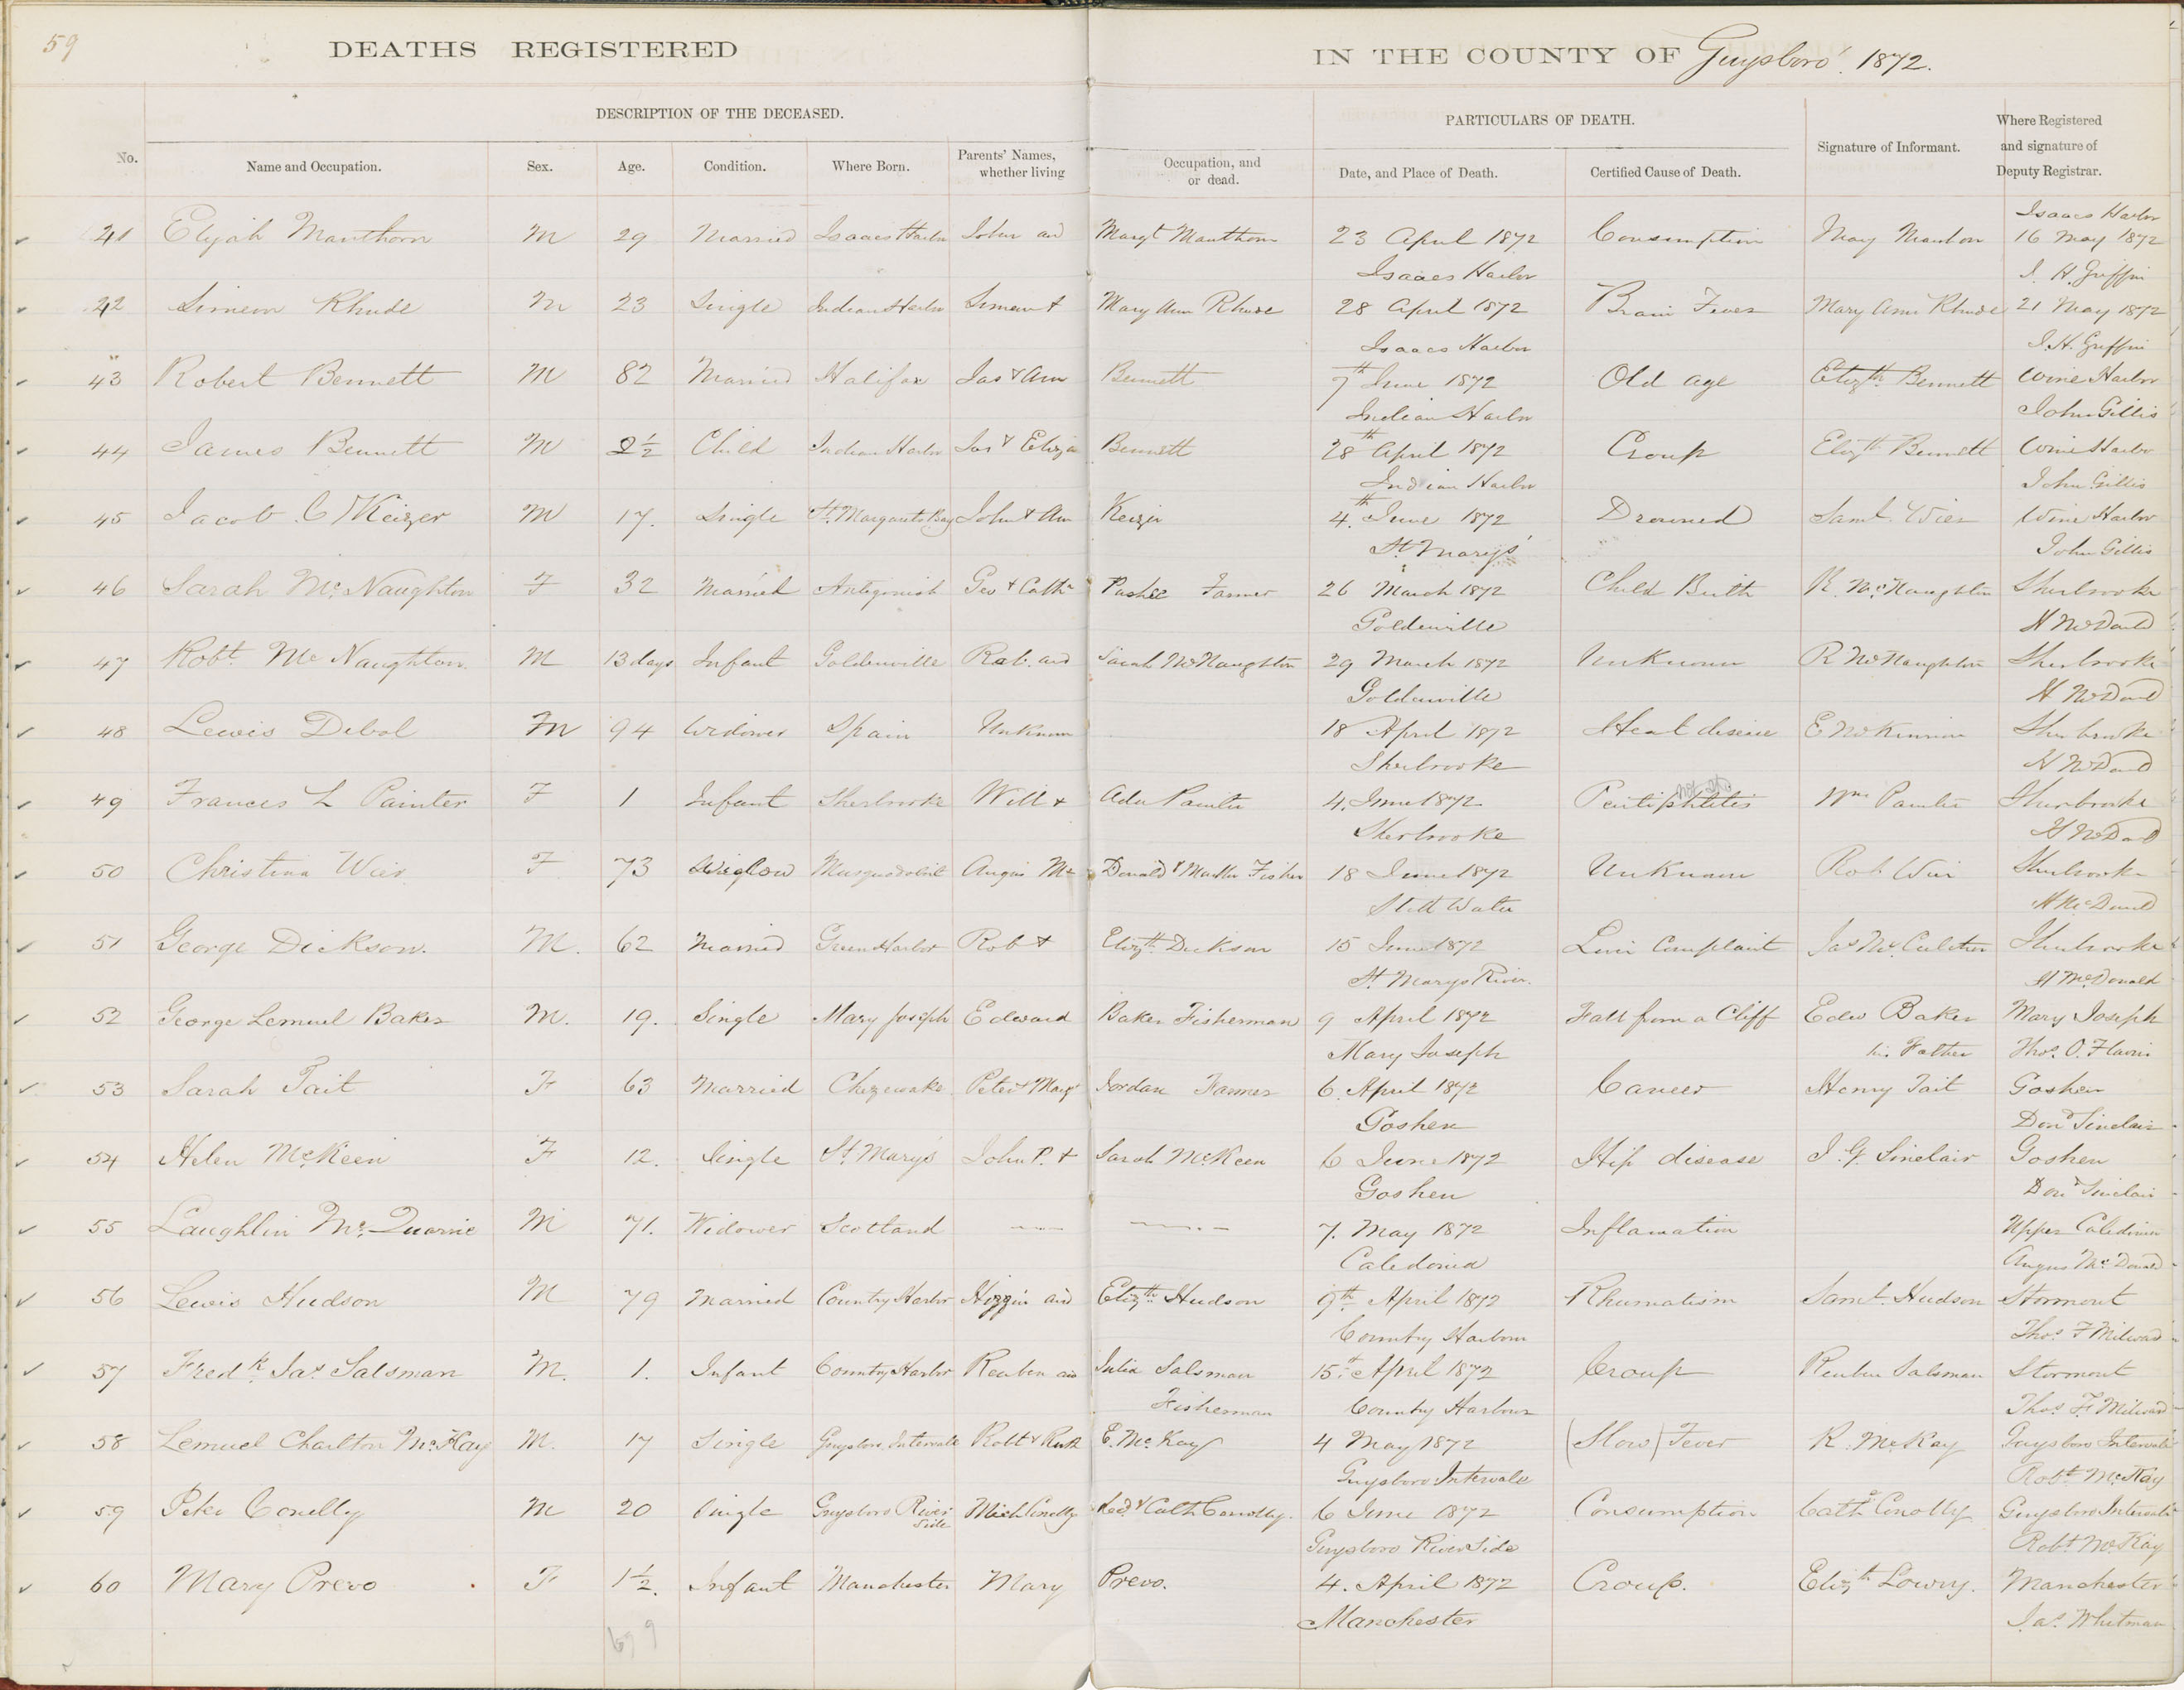 59
DEATHS REGISTERED IN THE COUNTY OF Guysboro' 1872.
DESCRIPTION OF THE DECEASED. PARTICULARS OF DEATH. Signature of Informant. Where Registered and signature of Deputy Registrar.
No. Name and Occupation. Sex. Age. Condition. Where Born. Parents' Names, whether living Occupation, and or dead. Date, and Place of Death. Certified Cause of Death.
Isaacs Harbor
41 Elijah Manthorn M 29 Married Isaacs Harbor John and Margt Manthorn 23 April 1872 Consumption May 16 May 1872
Isaacs Harbor
S. H. Griffin
42 Simeon Rhude M 23 Single Indian Harbor Simeon + Mary Ann Rhude 28 April 1872 Brain Fever Mary Ann Rhude 21 May 1872
Isaacs Harbor S. H. Griffin
43 Robert Bennett M 82 Married Halifax Jas & Ann Bennett 7th June 1872 Old age Elizth Bennett Wine Harbor
Indian Harbor John Gillis
44 James Bennett M 2½ Child Indian Harbor Jas & Eliza Bennett 28th April 1872 Croup Elizth Bennett Wine Harbor
Indian Harbor John Gillis
45 Jacob C Keizer M 17. Single St. Margarets Bay John & Ann Keizer 4th June 1872 Drowned Saml. Wier Wine Harbor
St Marys' John Gillis
46 Sarah Mc Naughton F 32 Married Antigonish Geo + Cathn Farmer 26 March 1872 Child Birth R. McNaughton Sherbrooke
Goldenville H McDonald
47 Robt. Mc Naughton M 13 days Infant Goldenville Rob. and Sarah McNaughton 29 March 1872 Unknown R McNaughton Sherbrooke
Goldenville H McDonald
48 Lewis Debol M 94 Widower Spain Unknown 18 April 1872 Heart disease E McKinnon Sherbrooke
Sherbrooke H McDonald
49 Frances L Painter F 1 Infant Sherbrooke Will + Ada Painter 4. June 1872 Wm Painter Sherbrooke
Sherbrooke H McDonald
50 Christina Wier F 73 Widow Musquodoboit Angus Mc Donald & Martha Fisher 18 June 1872 Unknown Rob Wier Sherbrooke
Still Water H McDonald
51 George Dickson. M. 62 Married Green Harbor Rob + Elizth Dickson 15 June 1872 Liver Complaint Jas Mc. Cutcheon Sherbrooke
St. Marys River. H McDonald
52 George Lemuel Baker M. 19. Single Mary Joseph Edward Baker Fisherman 9 April 1872 Fall from a Cliff Edw Baker Mary Joseph
Mary Joseph his Father Thos. O. Flavin
53 Sarah Tait F 63 Married Chezzetcake Peter & Margt Jordan Farmer 6. April 1872 Cancer Henry Tait Goshen
Goshen Dond Sinclair
54 Helen McKeen F 12. Single St. Mary's John P. + Sarah McKeen 6 June 1872 Hip disease J. G. Sinclair Goshen
Goshen Dond Sinclair
55 Laughlin Mc. Quarrie M 71. Widower Scotland 7. May 1872 Inflamation Upper Caledonia
Caledonia Angus McDonald
56 Lewis Hudson M 79 Married Country Harbor Higgin and Elizth Hudson 9th April 1872 Rhumatism Saml. Hudson Stormont
Country Harbour Thos. F Milward
57 Fredk. Jas. Salsman M. 1. Infant Country Harbor Reuben and Julia Salsman 15th April 1872 Croup Reuben Salsman Stormont
Fisherman Country Harbour Thos. F. Milward
58 Lemuel Charlton McKay M. 17 Single Guysboro Intervale Robt & Ruth E. McKay 4 May 1872 (Slow) Fever R. McKay Guysboro Intervale
Guysboro Intervale Robt. McKay
59 Peter Conelly M 20 Single Guysboro River Side Mich Conelly ded. & Cath Connolly. 6 June 1872 Consumption Cathe Conolly Guysboro Intervale
Guysboro River Side Robt. McKay
60 Mary Prevo F 1½. Infant Manchester Mary Prevo. 4. April 1872 Croup. Elizth Lowry. Manchester
Manchester Jas. Whitman
699